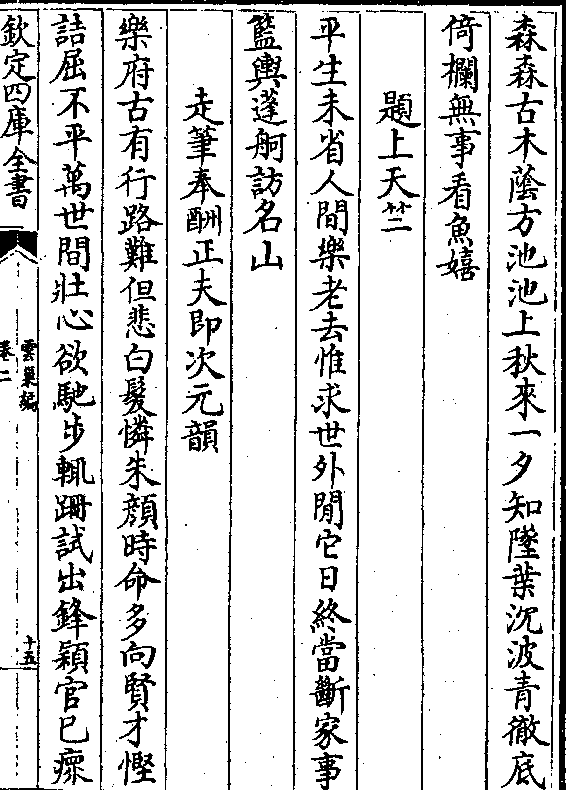 森森古木蔭方池池上秋來一夕知墜葉沉波青徹底
倚欄無事看魚嬉
題上天竺
平生未省人間樂老去惟求世外閒它日終當斷家事
籃輿蓬舸訪名山
走筆奉酬正夫即次元韻
樂府古有行路難但悲白髮憐朱顔時命多向賢才慳
詰屈不平萬世間壯心欲馳步輒跚試出鋒穎官已瘝
欽定四庫全書
雲巢編
卷二
十五